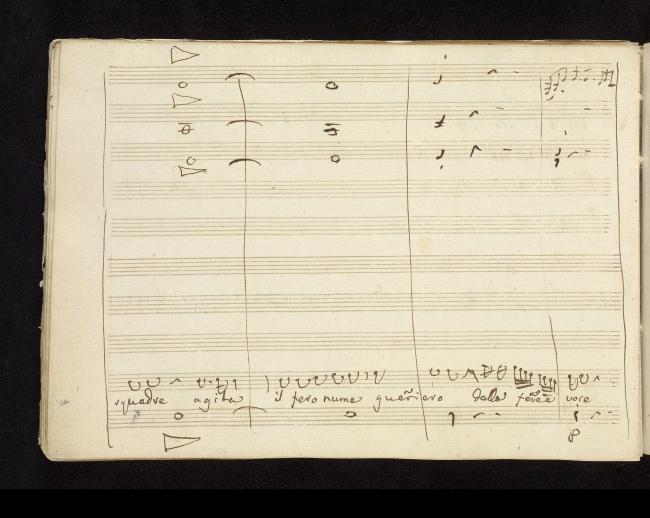 squadre agita il fero nume guerriero dalla ferrea voce
p